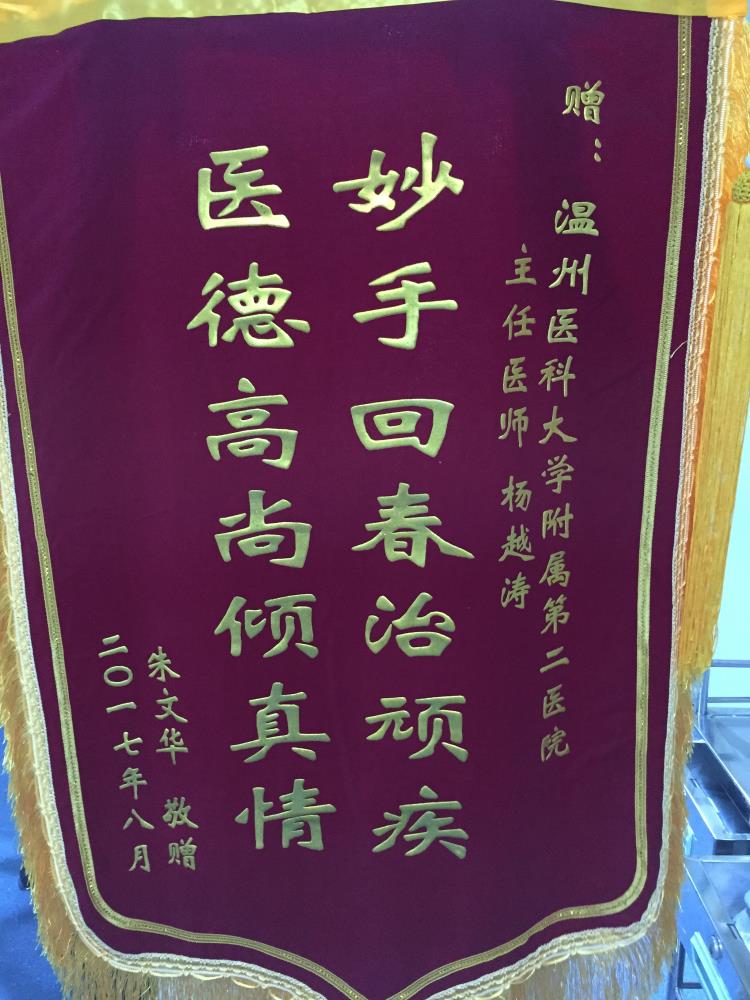 赠：温州医科大学附属第二医院
主任医师 杨越涛
妙手回春治顽疾
医德高尚倾真情
朱文华 敬赠
二〇一七年八月